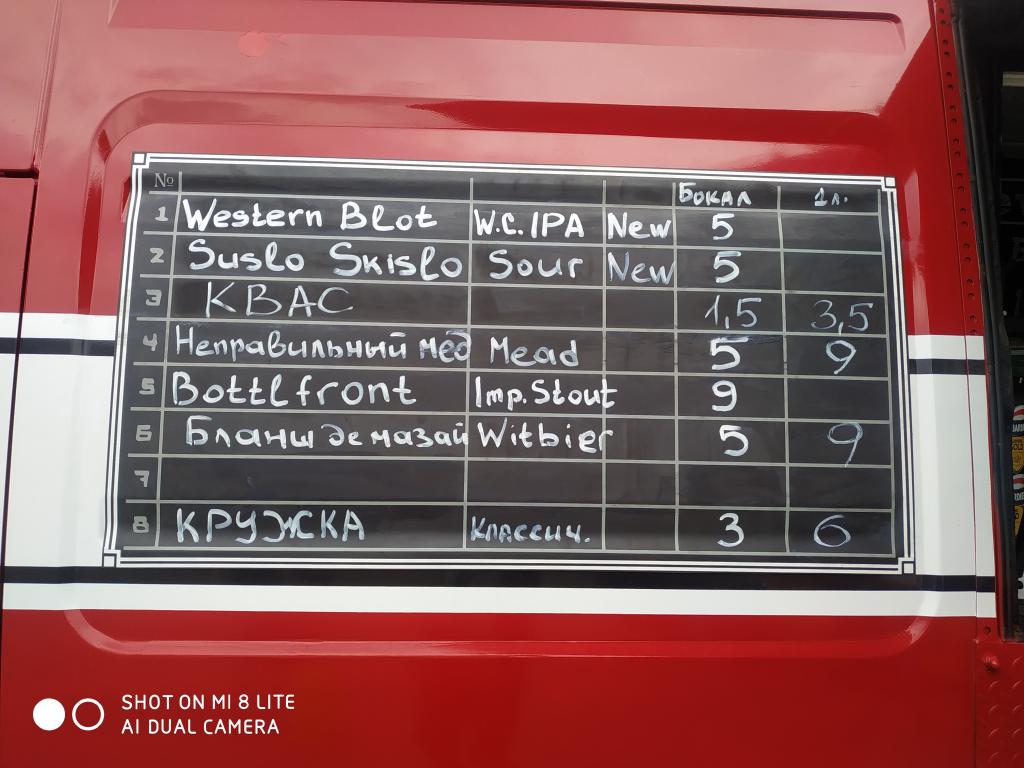 № Бокал 1л.
1 Western Blot W.C. IPA New 5
2 Suslo Skislo Sour New 5
3 КВАС 1,5 3,5
4 Неправильный мёд Mead 5 9
5 Bottlfront Imp. Stout 9
6 Бланш де мазай Witbier 5 9
7
8 КРУЖКА классич. 3 6
SHOT ON MI 8 LITE
AI DUAL CAMERA